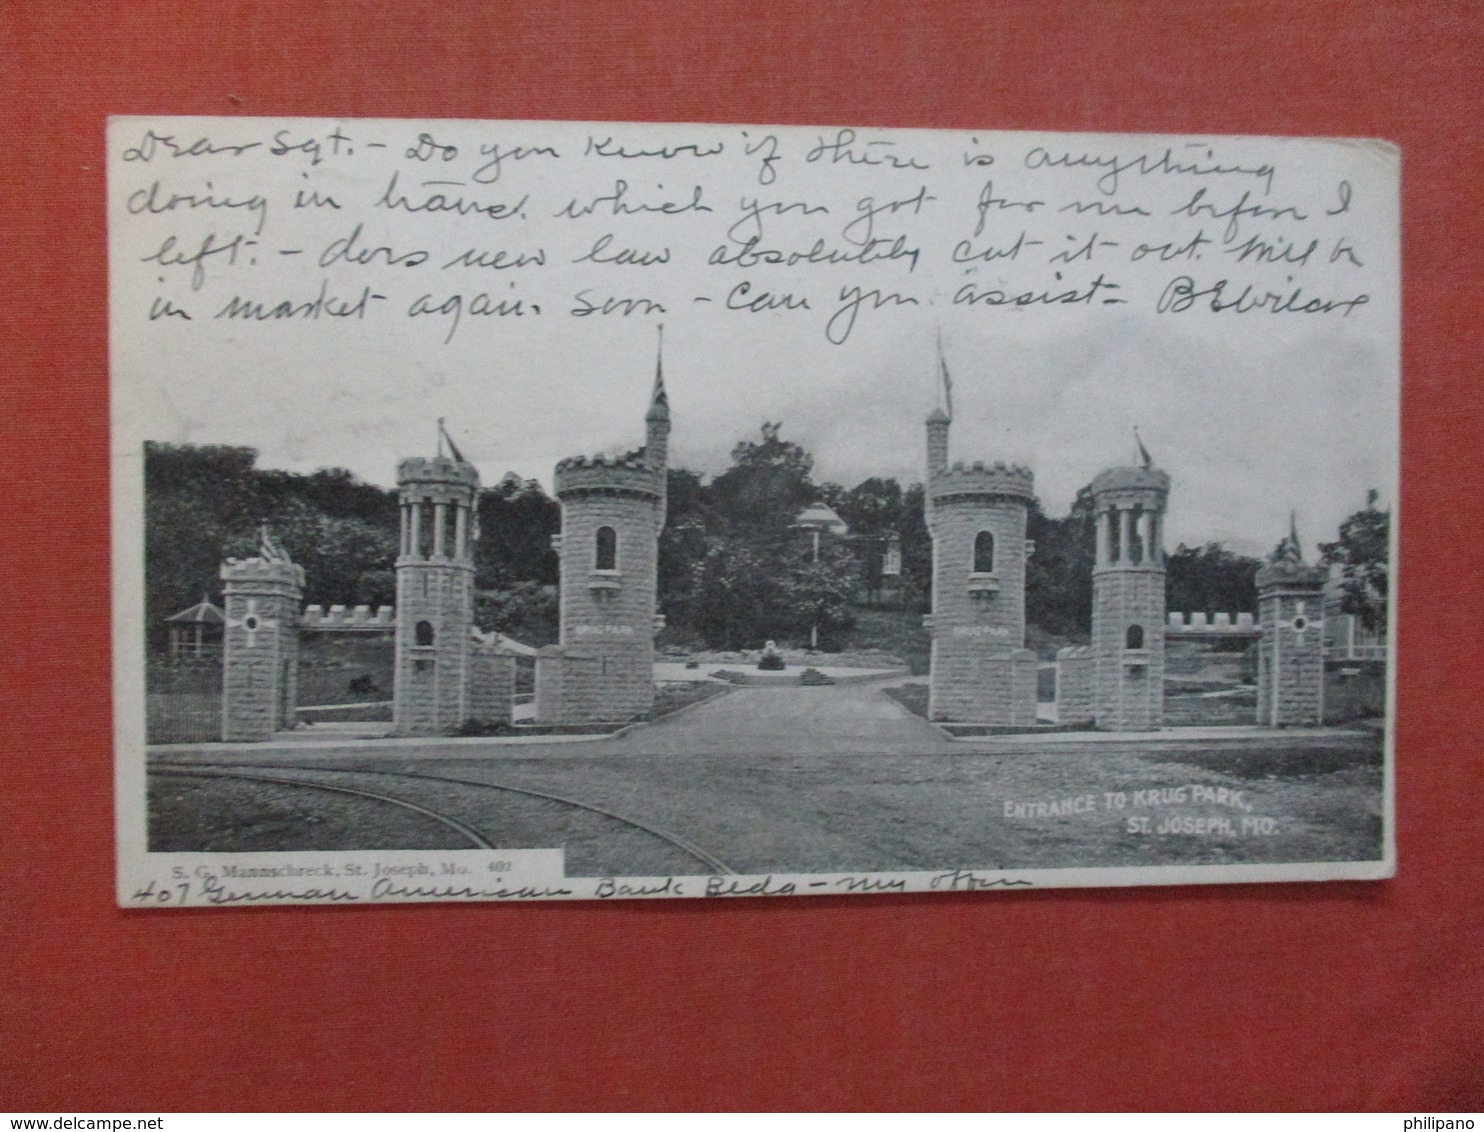 Dear Sgt. - Do you know if there is anything
doing in trans. which you got for me before I
left. - does new law absolutely cut it out. Will be
in market again. soon - Can you assist - B E Wilcox
KRUG PARK
KRUG PARK
ENTRANCE TO KRUG PARK,
ST. JOSEPH, MO.
S. G. Mannschreck, St. Joseph, Mo. 402
407 German American Bank Bldg - my office
www.delcampe.net
philipano